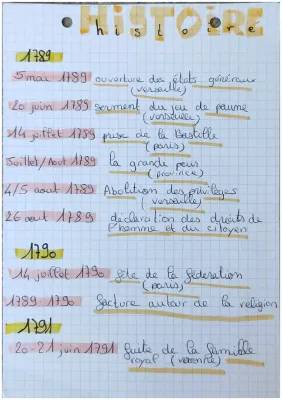 HISTOIRE
histoire
1789
5 mai 1789 ouverture des états généraux
(versaille)
20 juin 1789 serment du jeu de paume
(versaille)
14 juillet 1789 prise de la Bastille
(paris)
Juillet/Aout 1789 la grande peur
(province)
4/5 aout 1789 Abolition des privilèges
(versaille)
26 aout 1789 déclaration des droits de
l'homme et du citoyen
1790
14 juillet 1790 fête de la fédération
(paris)
1789 1790 facture autour de la religion
1791
20-21 juin 1791 fuite de la famille
royal (varenne)